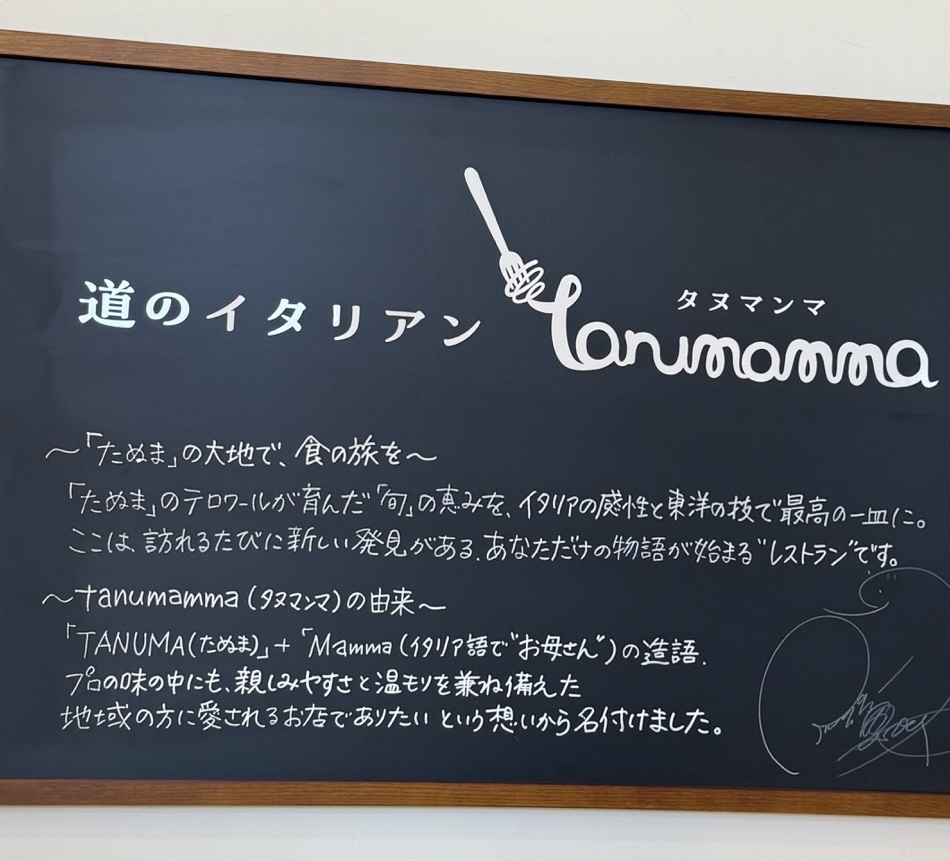 道のイタリアン
タヌマンマ
tanumamma
～「たぬま」の大地で、食の旅を～
「たぬま」のテロワールが育んだ「旬」の恵みを、イタリアの感性と東洋の技で最高の一皿に。
ここは、訪れるたびに新しい発見がある、あなただけの物語が始まる“レストラン”です。
～tanumamma(タヌマンマ)の由来～
「TANUMA(たぬま)」+「Mamma(イタリア語で“お母さん”)の造語.
プロの味の中にも、親しみやすさと温モリを兼ね備えた
地域の方に愛されるお店でありたい という想いから名付けました。